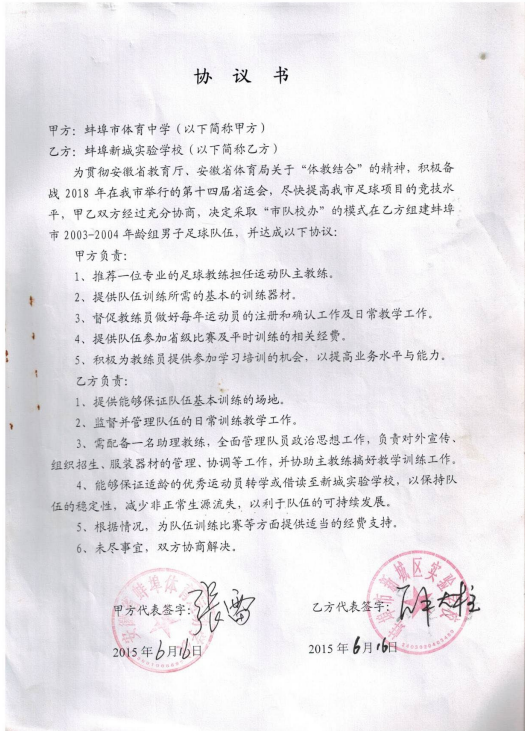 协 议 书
甲方：蚌埠市体育中学（以下简称甲方）
乙方：蚌埠新城实验学校（以下简称乙方）
为贯彻安徽省教育厅、安徽省体育局关于“体教结合”的精神，积极备
战 2018 年在我市举行的第十四届省运会，尽快提高我市足球项目的竞技水
平，甲乙双方经过充分协商，决定采取“市队校办”的模式在乙方组建蚌埠
市 2003-2004 年龄组男子足球队伍，并达成以下协议：
甲方负责：
1、推荐一位专业的足球教练担任运动队主教练。
2、提供队伍训练所需的基本的训练器材。
3、督促教练员做好每年运动员的注册和确认工作及日常教学工作。
4、提供队伍参加省级比赛及平时训练的相关经费。
5、积极为教练员提供参加学习培训的机会，以提高业务水平与能力。
乙方负责：
1、提供能够保证队伍基本训练的场地。
2、监督并管理队伍的日常训练教学工作。
3、需配备一名助理教练，全面管理队员政治思想工作，负责对外宣传、
组织招生、服装器材的管理、协调等工作，并协助主教练搞好教学训练工作。
4、能够保证适龄的优秀运动员转学或借读至新城实验学校，以保持队
伍的稳定性，减少非正常生源流失，以利于队伍的可持续发展。
5、根据情况，为队伍训练比赛等方面提供适当的经费支持。
6、未尽事宜，双方协商解决。
甲方代表签字：张雷
乙方代表签字：
2015 年 6 月 16 日
2015 年 6 月 16 日